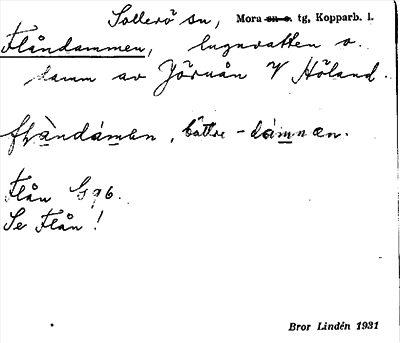 Sollerö sn, Mora sn o. tg, Kopparb. l.
Flåndammen, lugnvatten o.
damm av Jöruån V Höland.
flåndámen, bättre -dámnen.
Flån G96.
Se Flån!
Bror Lindén 1931